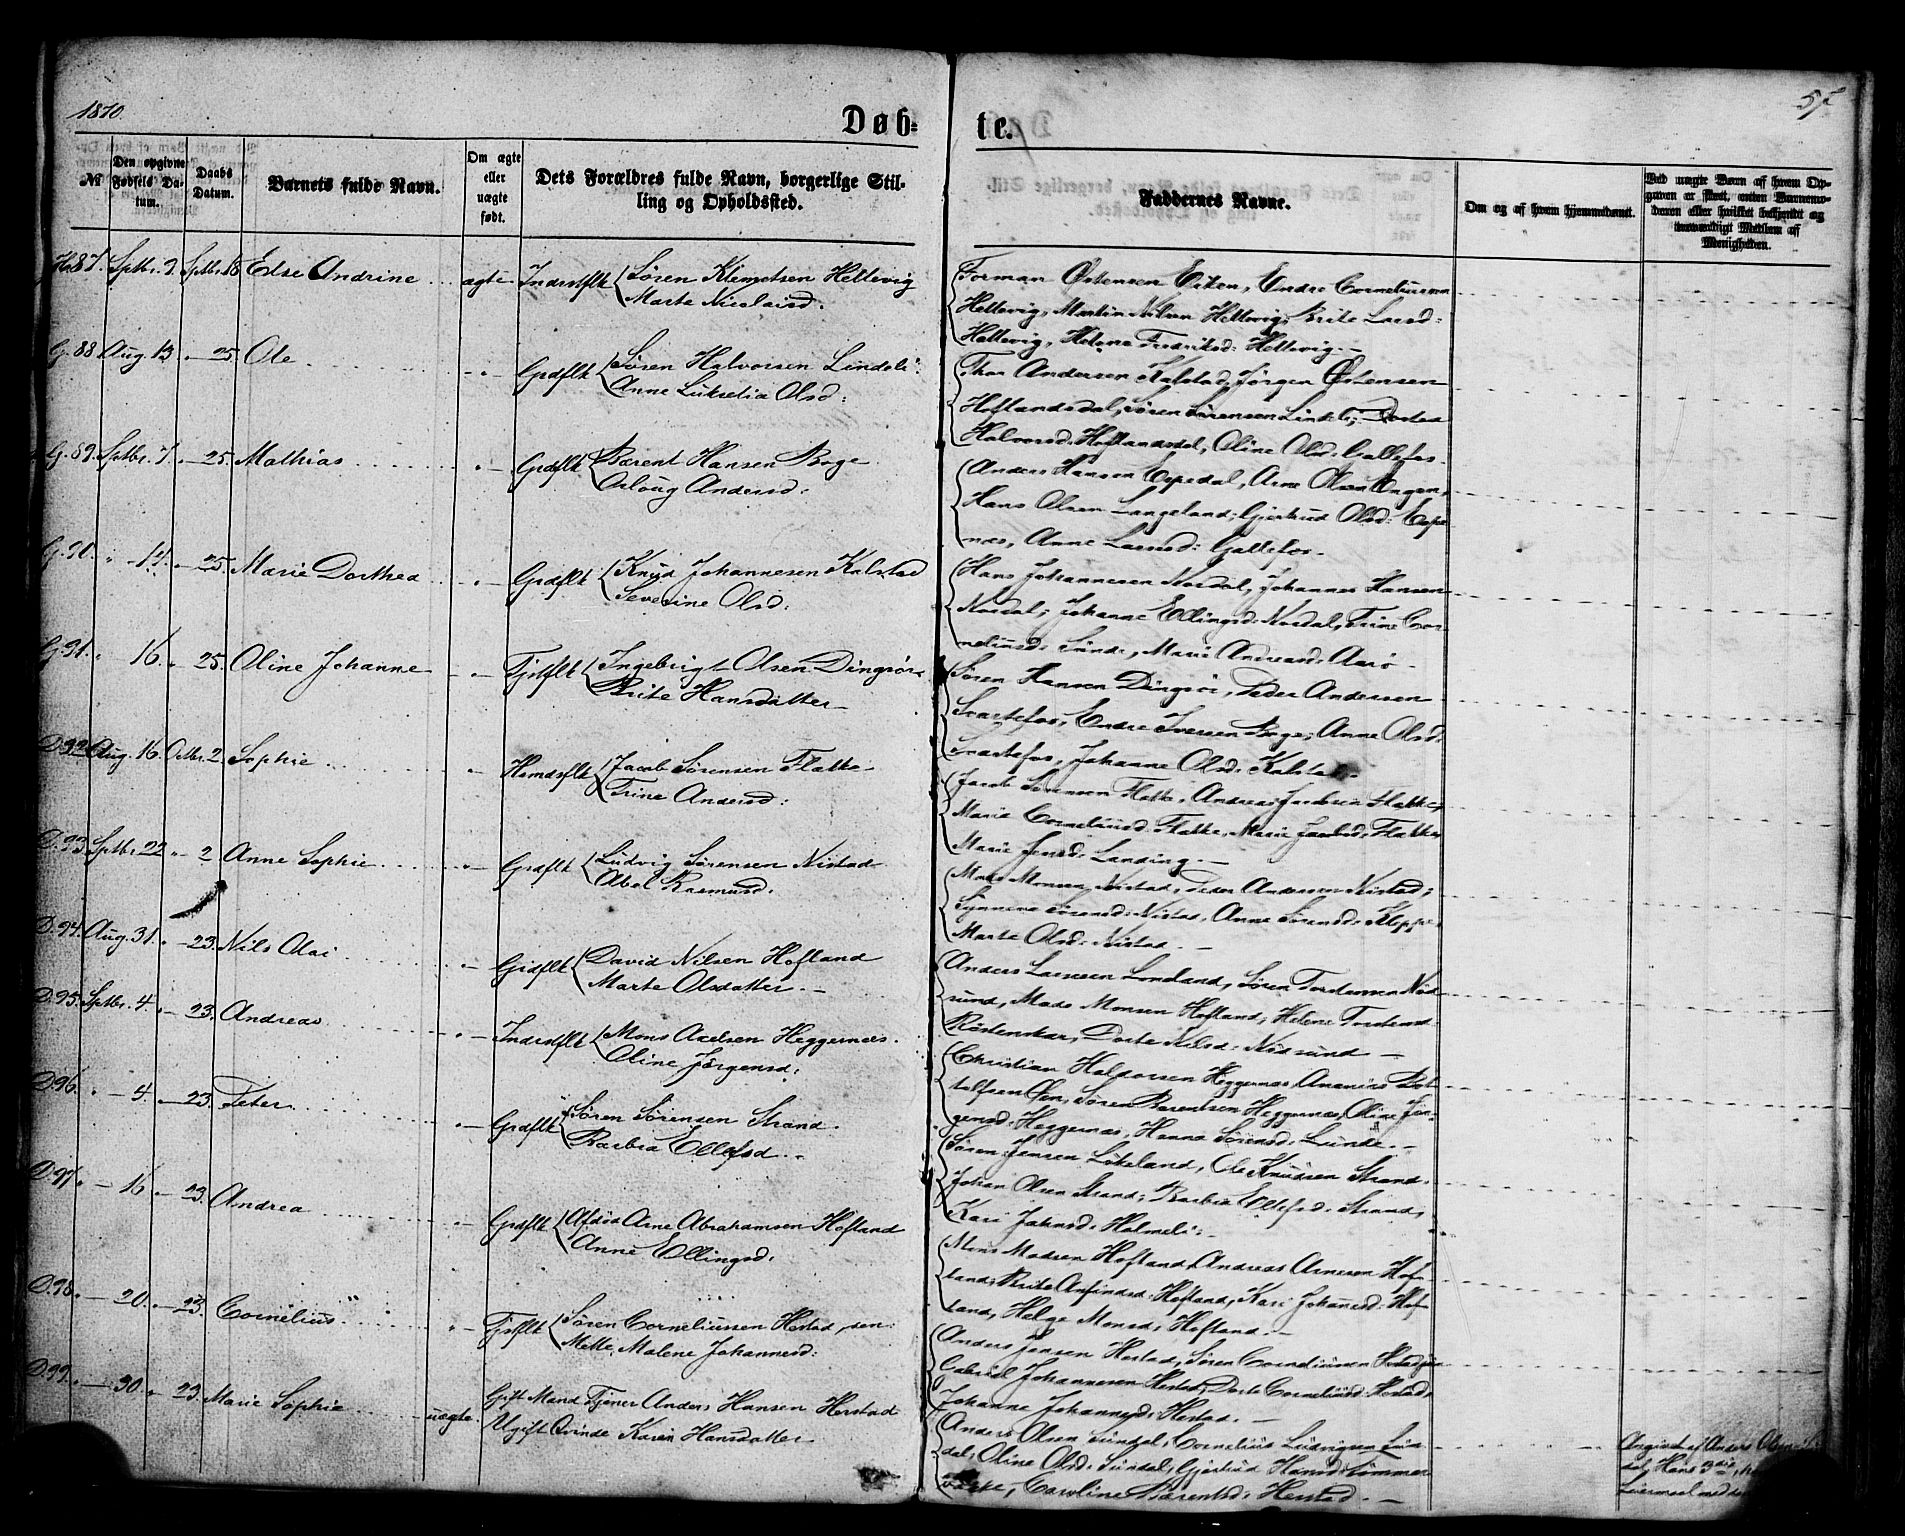 1870.
Døb-
te.
57
№
Den opgivne Fødsels Datum.
Daabs Datum.
Barnets fulde Navn.
Om ægte eller uægte født.
Dets Forældres fulde Navn, borgerlige Stilling og Opholdssted.
Faddernes Navne.
Om og af hvem hjemmedøbt.
H.87. Sptbr. 9. Sptbr. 18 Else Andrine ægte Indrstflt Søren Klemetsen Hellevig
Marte Nicolaisd:
Forman Østensen Eiken, Endre Corneliussen
Hellevig, Martin Nilsen Hellevig, Brite Larsd:
Hellevig, Helene Fredriksd: Hellevig. —
G.88 Aug. 13 " — 25 Ole — " — Grdflt Søren Halvorsen Lindeli
Anne Lukselia Olsd:
Thor Andersen Kalstad, Jørgen Østensen
Hoflandsdal, Søren Sørensen Lindeli, Dortea
Halvorsd: Hoflandsdal, Oline Olsd: Gallefos
G.89. Sptbr. 7. " — 25. Mathias " — Grdflt Bærent Hansen Boge
Asloug Andersd:
Anders Hansen Espedal, Arne Olsen Engen,
Hans Olsen Langeland, Gjertrud Olsd: Espe-
næs, Anne Larsd: Gallefos. —
G.90. " — 14. " — 25. Marie Dorthea " — Grdflt Knud Johannesen Kalstad
Severine Olsd:
Hans Johannesen Nordal, Johannes Hansen
Nordal, Johanne Ellingsd: Nordal, Trine Cor-
neliusd: Sunde, Marie Andreasd: Aarø —
G.91. " 16. " 25. Oline Johanne — " — Tjstflt Ingebrigt Olsen Dingsør
Brite Hansdatter —
Søren Hansen Dingsør, Peder Andersen
Svartefos, Endre Iversen Boge, Anne Olsd:
Svartefos, Johanne Olsd: Kalstad —
D.92 Aug. 16. Octbr. 2. Sophie " Hsmdsflt Jacob Sørensen Flatke
Trine Andersd:
Jacob Sørensen Flatke, Andreas Jacobsen Flatke,
Marie Corneliusd: Flatke, Marie Jacobsd: Flatke,
Marie Jensd: Landing. —
D.93. Sptbr. 22 " — 2 Anne Sophie " — Grdflt Ludvig Sørensen Nistad
Abel Rasmusd:
Mads Monsen Nistad, Peder Andersen Nistad;
Synneve Sørensd: Nistad, Anne Sørensd: Kleppe,
Marte Olsd: Nistad. —
D.94. Aug. 31. " — 23. Nils Olai " — Grdflt David Nilsen Hofland
Marte Olsdatter. —
Anders Larsen Lomland, Søren Torstensen Nød-
sund, Mads Monsen Hofland, Helene Torstensd:
Røstenskar, Dorte Nilsd: Nødsund —
D.95. Sptbr. 4. " — 23. Andreas " — Indrstflt Mons Axelsen Heggernæs.
Oline Jørgensd:
Christian Haldorsen Heggernæs, Ananias Bot-
tolfsen Øen, Søren Bærentsen Heggernæs, Oline Jør-
gensd: Heggernæs, Hanna Sørensd: Lunde. —
D.96. " — 4. — 23. Peter " — Grdflt Søren Sørensen Strand.
Barbra Ellefsd. —
Søren Jensen Løkeland, Ole Knudsen Strand,
Johan Olsen Strand; Barbra Ellefsd: Strand,
Kari Johnsd: Holmeli: —
D.97 " — 16 " — 23. Andrea " — Grdflt Afdød Arne Abrahamsen Hofland
Anne Ellingsd:
Mons Madsen Hofland, Andreas Arnesen Hof-
land, Brite Anfindsd: Hofland, Kari Johansd: Hof-
land, Helge Monsd: Hofland. —
D.98. " — 20. " — 23. Cornelius " — Tjstflt Søren Corneliussen Hestad, sen:
Mette Malene Johannesd:
Anders Jensen Hestad, Søren Corneliussen Hestad jun
Gabriel Johannesen Hestad, Dorte Corneliusd: Hestad,
Johanne Johannesd: Hestad. —
D.99. " — 30. " 23. Marie Sophie uægte. Gift Mand Tjener Anders Hansen Herstad
Ugift Qvinde Karen Hansdatter
Anders Olsen Sundal, Cornelius Ludvigsen Sun-
dal, Oline Olsd: Sundal, Gjertrud Hansd: Tømmer-
bakke, Caroline Bærentsd: Herstad. —
Angivet af Anders Olsen
dal, Hans 3die
Leiermaal med